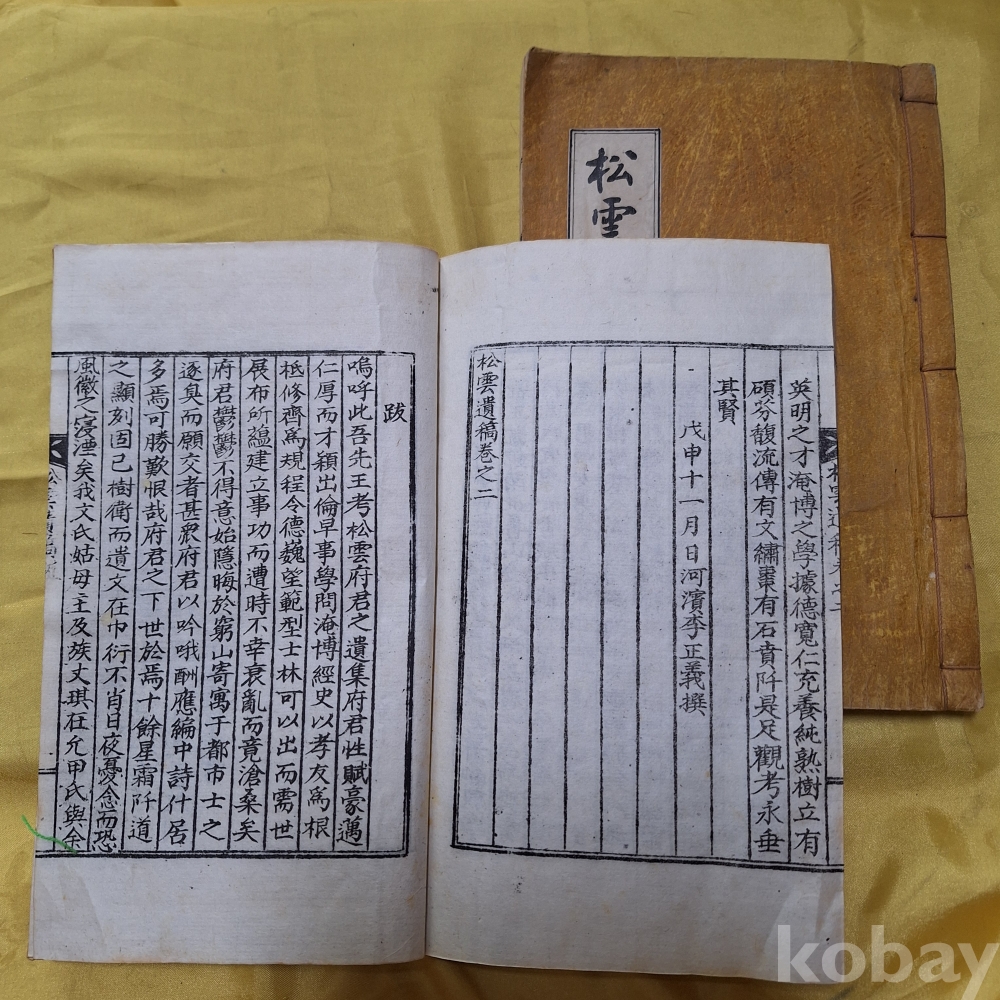 松雲
英明之才淹博之學據德寬仁充養純熟樹立有
碩芬馥流傳有文繡棗有石賁阡是足觀考永垂
其賢
戊申十一月日河濱李正義撰
松雲遺稿卷之二
松雲遺稿卷之二
跋
嗚呼此吾先王考松雲府君之遺集府君性賦豪邁
仁厚而才穎出倫早事學問淹博經史以孝友爲根
柢修齊爲規程令德巍望範型士林可以出而需世
展布所蘊建立事功而遭時不幸衰亂而竟滄桑矣
府君鬱鬱不得意始隱晦於窮山寄寓于都市士之
逐臭而願交者甚衆府君以吟哦酬應編中詩什居
多焉可勝歎恨哉府君之下世於焉十餘星霜阡道
之顯刻固已樹衛而遺文在巾衍不肖日夜憂念而恐
風徽之寖湮矣我文氏姑母主及族丈琪在允甲氏與余
kobay